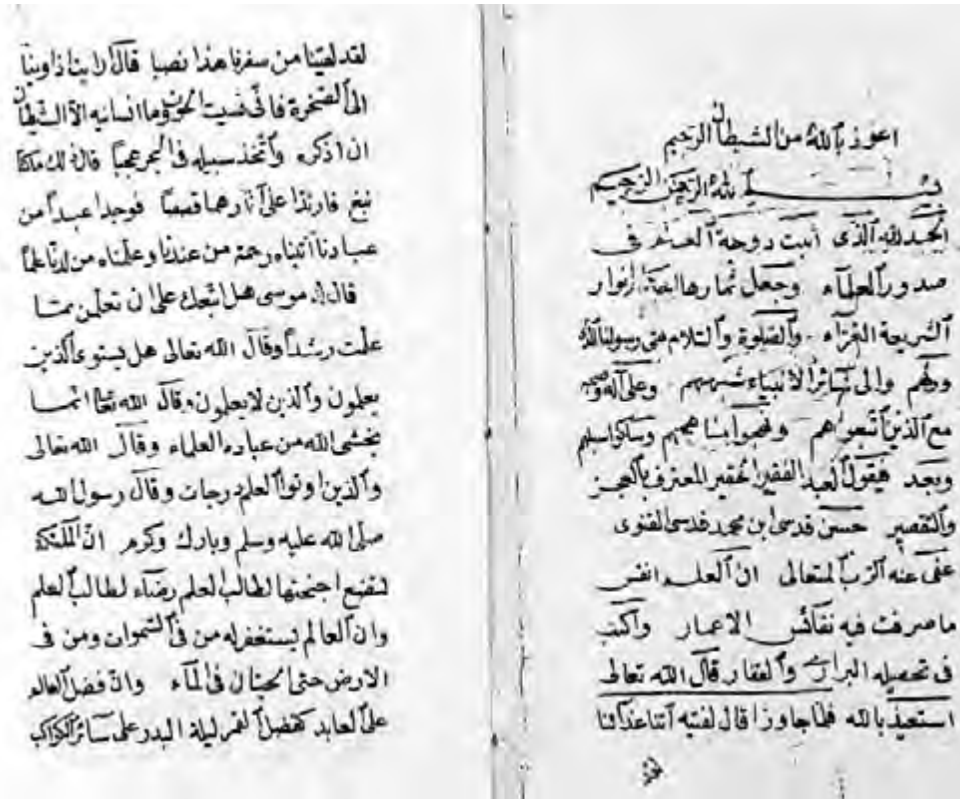 اعوذ بالله من الشيطان الرجيم
بسم الله الرحمن الرحيم
الحمد لله الذى انبت دوحة العلم فى
صدور العلماء وجعل ثمارها انوار
الشريعة الغراء والصلوة والسلام رسولنا
والى سائر الانبياء وعلى آله
مع الذين اتبعواهم
وبعد فيقول العبد الفقير الحقير المعترف بالعجز
والتقصير حسن قدسى ابن محمد قدسى القنوى
عفى عنه الرب المتعالى ان العلم انفس
ما صرفت فيه نفائس الاعمار
فى تحصيله البرارى والقفار قال الله تعالى
استعيذ بالله فلما جاوزا قال لفتيه آتنا غدائنا
لقد
لقد لقينا من سفرنا هذا نصبا قال ارايت اذ اوينا
الى الصخرة فانى نسيت الحوت وما انسانيه الا الشيطان
ان اذكره واتخذ سبيله فى البحر عجبا قال ذلك ما كنا
نبغ فارتدا على آثارهما قصصا فوجدا عبدا من
عبادنا آتيناه رحمة من عندنا وعلمناه من لدنا علما
قال له موسى هل اتبعك على ان تعلمن مما
علمت رشدا وقال الله تعالى هل يستوى الذين
يعلمون والذين لا يعلمون وقال الله تعا انما
يخشى الله من عباده العلماء وقال الله تعالى
والذين اوتوا العلم درجات وقال رسول الله
صلى الله عليه وسلم وبارك وكرم ان الملئكة
لتضع اجنحتها لطالب العلم رضاء لطالب العلم
وان العالم ليستغفر له من فى السموات ومن فى
الارض حتى الحيتان فى الماء وان فضل العالم
على العابد كفضل القمر ليلة البدر على سائر الكواكب